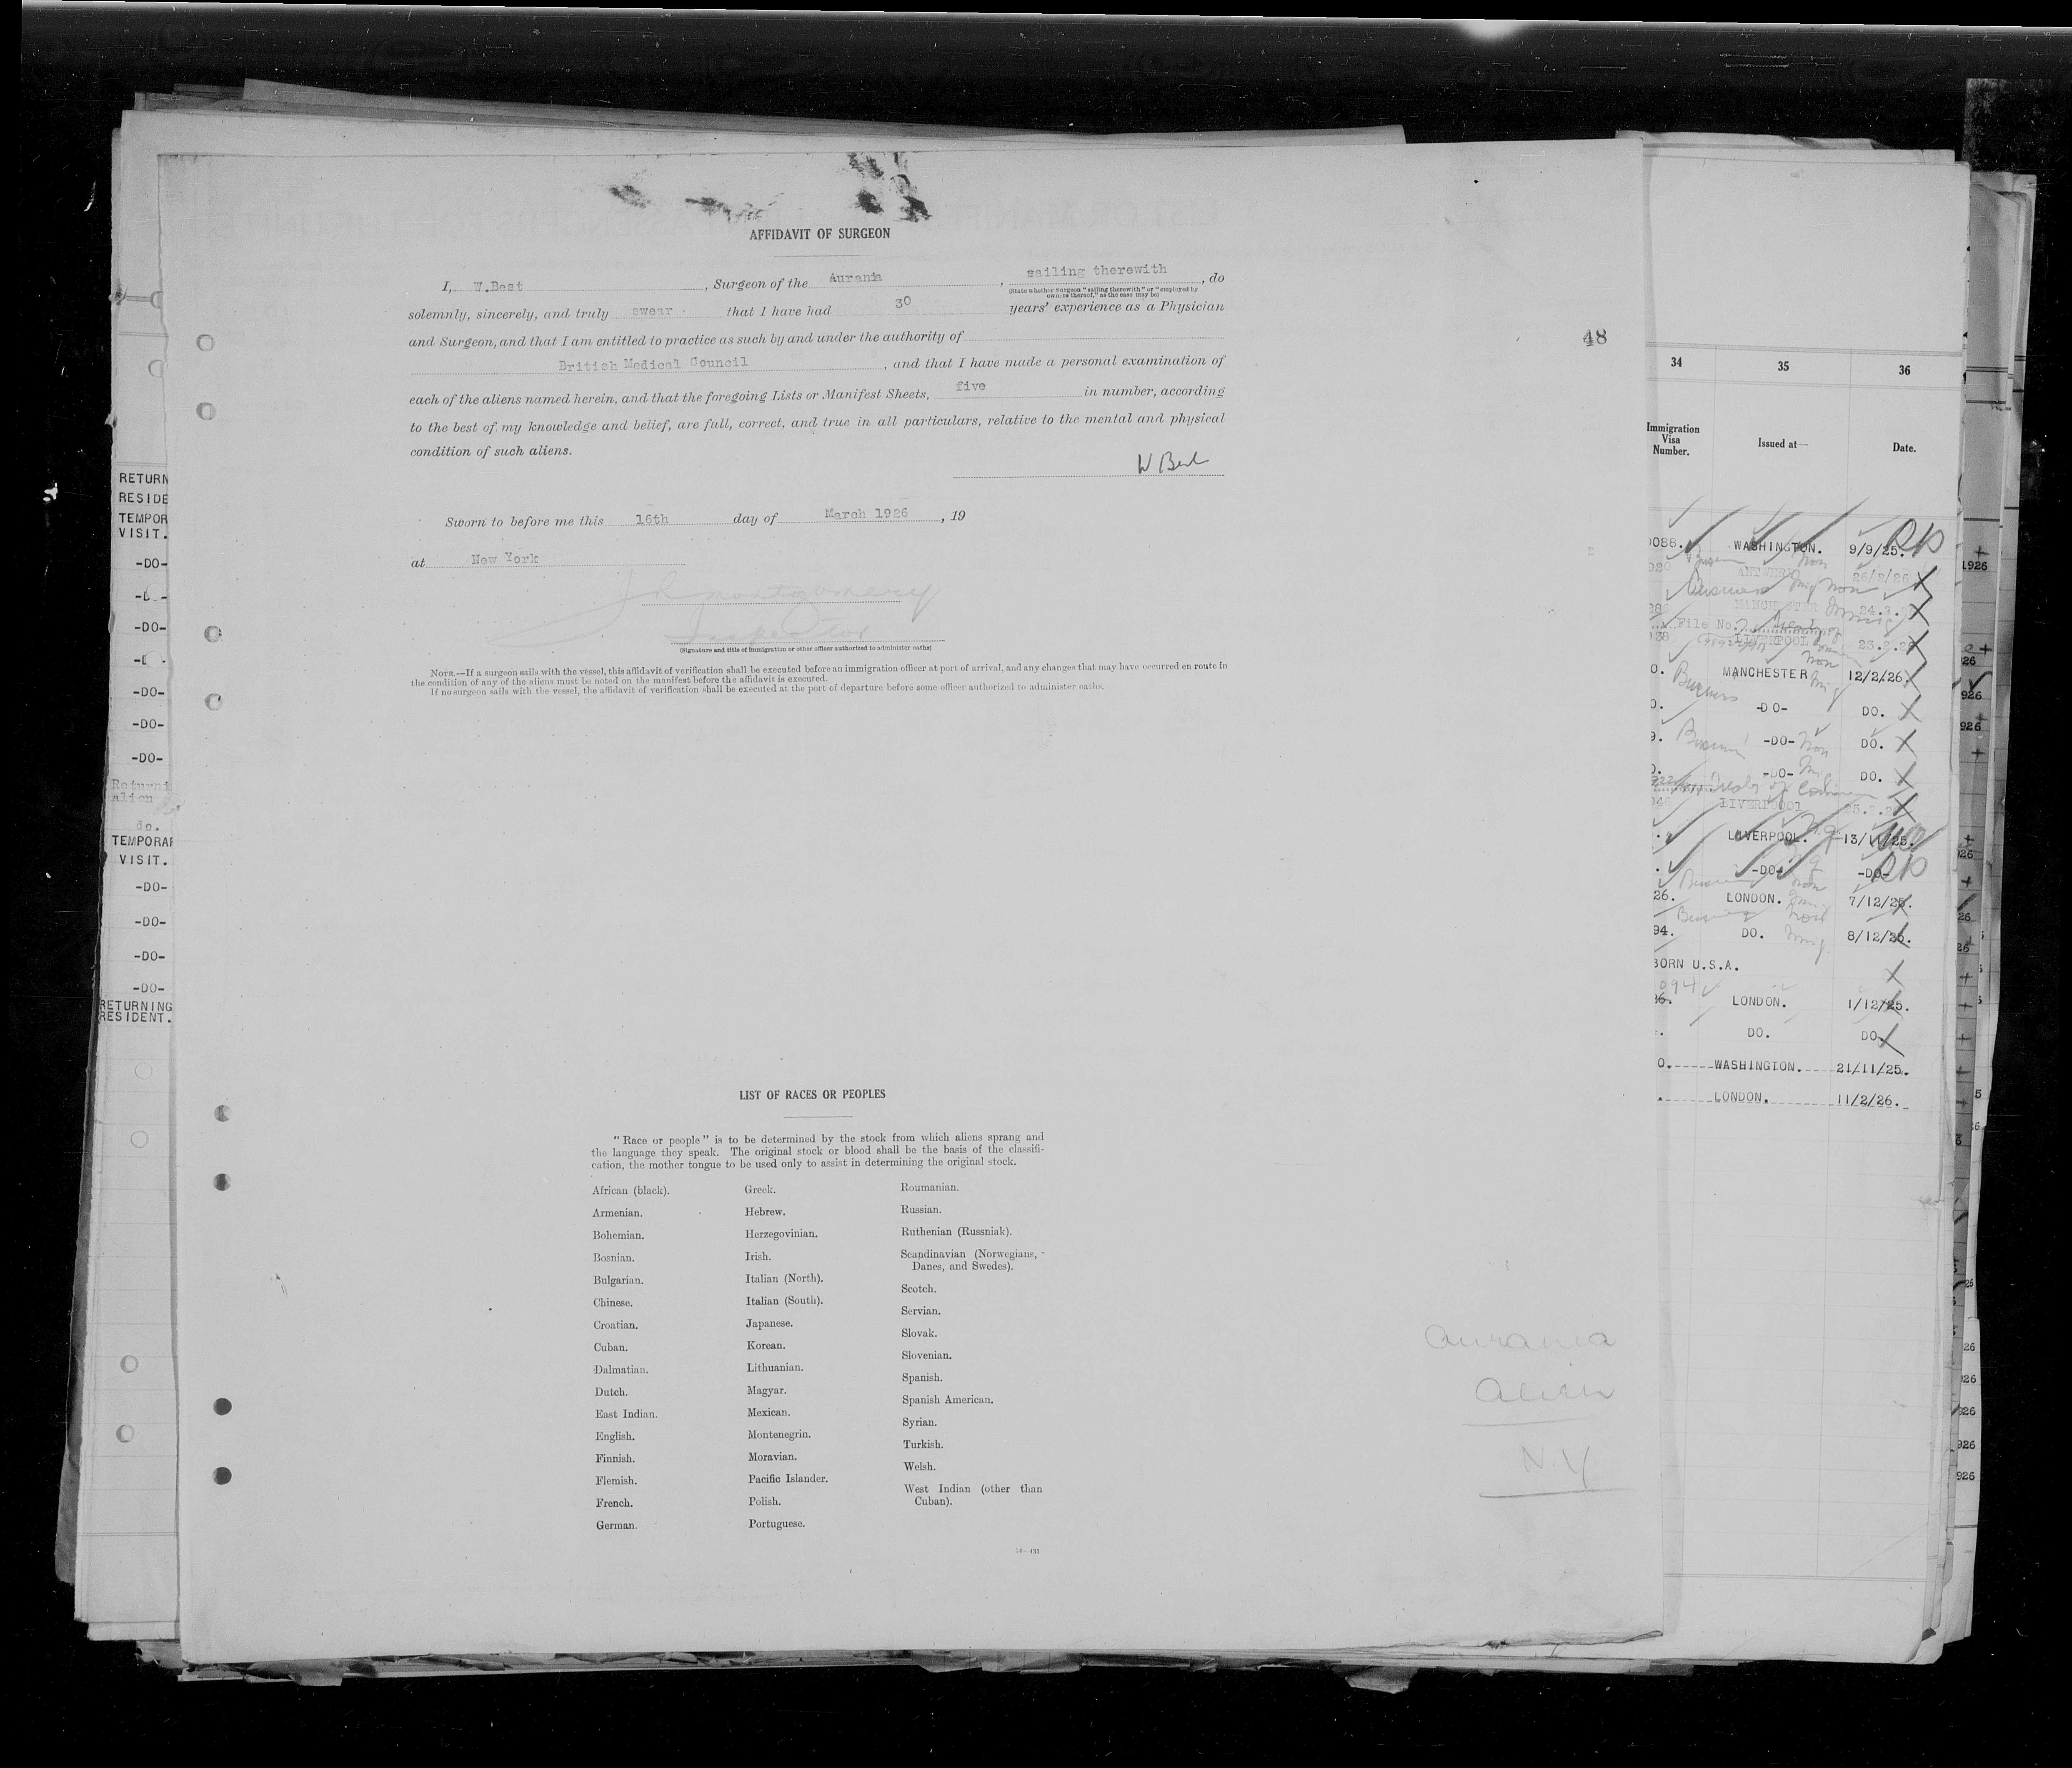 AFFIDAVIT OF SURGEON
I, W.Best, Surgeon of the Aurania, sailing therewith, do
(State whether Surgeon "sailing therewith" or "employed by
owners thereof," as the case may be)
solemnly, sincerely, and truly swear that I have had 30 years' experience as a Physician
and Surgeon, and that I am entitled to practice as such by and under the authority of
British Medical Council, and that I have made a personal examination of
each of the aliens named herein, and that the foregoing Lists or Manifest Sheets, five in number, according
to the best of my knowledge and belief, are full, correct, and true in all particulars, relative to the mental and physical
condition of such aliens.
W Best
Sworn to before me this 16th day of March 1926, 19
at New York
Montgomery
Inspector
(Signature and title of immigration or other officer authorized to administer oaths)
NOTE.—If a surgeon sails with the vessel, this affidavit of verification shall be executed before an immigration officer at port of arrival, and any changes that may have occurred en route in
the condition of any of the aliens must be noted on the manifest before the affidavit is executed.
If no surgeon sails with the vessel, the affidavit of verification shall be executed at the port of departure before some officer authorized to administer oaths.
48
LIST OF RACES OR PEOPLES
"Race or people" is to be determined by the stock from which aliens sprang and
the language they speak. The original stock or blood shall be the basis of the classifi-
cation, the mother tongue to be used only to assist in determining the original stock.
African (black).
Armenian.
Bohemian.
Bosnian.
Bulgarian.
Chinese.
Croatian.
Cuban.
Dalmatian.
Dutch.
East Indian.
English.
Finnish.
Flemish.
French.
German.
Greek.
Hebrew.
Herzegovinian.
Irish.
Italian (North).
Italian (South).
Japanese.
Korean.
Lithuanian.
Magyar.
Mexican.
Montenegrin.
Moravian.
Pacific Islander.
Polish.
Portuguese.
Roumanian.
Russian.
Ruthenian (Russniak).
Scandinavian (Norwegians,
Danes, and Swedes).
Scotch.
Servian.
Slovak.
Slovenian.
Spanish.
Spanish American.
Syrian.
Turkish.
Welsh.
West Indian (other than
Cuban).
Aurania
Alien
N.Y
RETURN
RESIDE
TEMPOR
VISIT.
-DO-
-DO-
-DO-
-DO-
-DO-
-DO-
Returni
alien
do.
TEMPORAR
VISIT.
-DO-
-DO-
-DO-
-DO-
RETURNING
RESIDENT.
34 35 36
Immigration
Visa
Number.
Issued at—
Date.
0088. WASHINGTON. 9/9/25.
920 ANTWERP 26/2/26
Business
MANCHESTER 24.2.
File No.
38 LIVERPOOL 23.2.26
0. MANCHESTER 12/2/26.
Business
0. -DO- DO.
9. -DO- DO.
0. -DO- DO.
LIVERPOOL
LIVERPOOL. 13/11/25.
-DO- -DO-
26. LONDON. 7/12/25.
94. DO. 8/12/25.
BORN U.S.A.
094
36. LONDON. 1/12/25.
DO. DO.
0. WASHINGTON. 21/11/25.
LONDON. 11/2/26.
1926
926
926
926
926
926